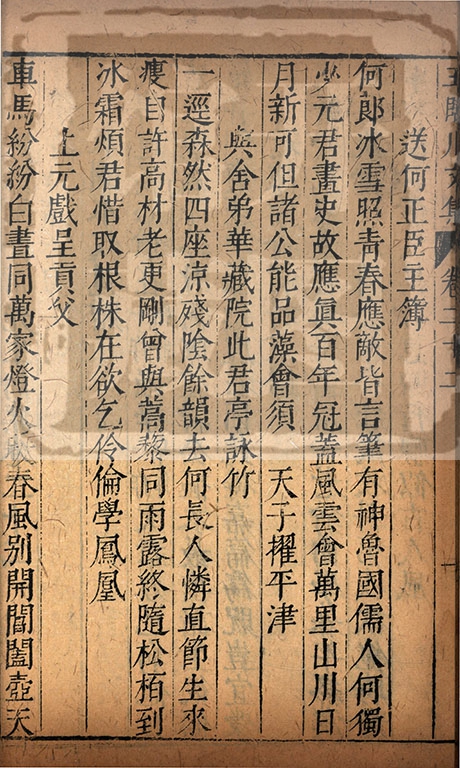 王臨川文集 卷二十二
送何正臣主簿
何郎冰雪照青春應敵皆言筆有神魯國儒人何獨
少元君畫史故應眞百年冠蓋風雲會萬里山川日
月新可但諸公能品藻會須 天子擢平津
與舍弟華藏院此君亭詠竹
一逕森然四座涼殘陰餘韻去何長人憐直節生來
瘦自許高材老更剛曾與蒿藜同雨露終隨松栢到
冰霜煩君惜取根株在欲乞伶倫學鳳凰
上元戲呈貢父
車馬紛紛白晝同萬家燈火𤎅春風别開閶闔壺天